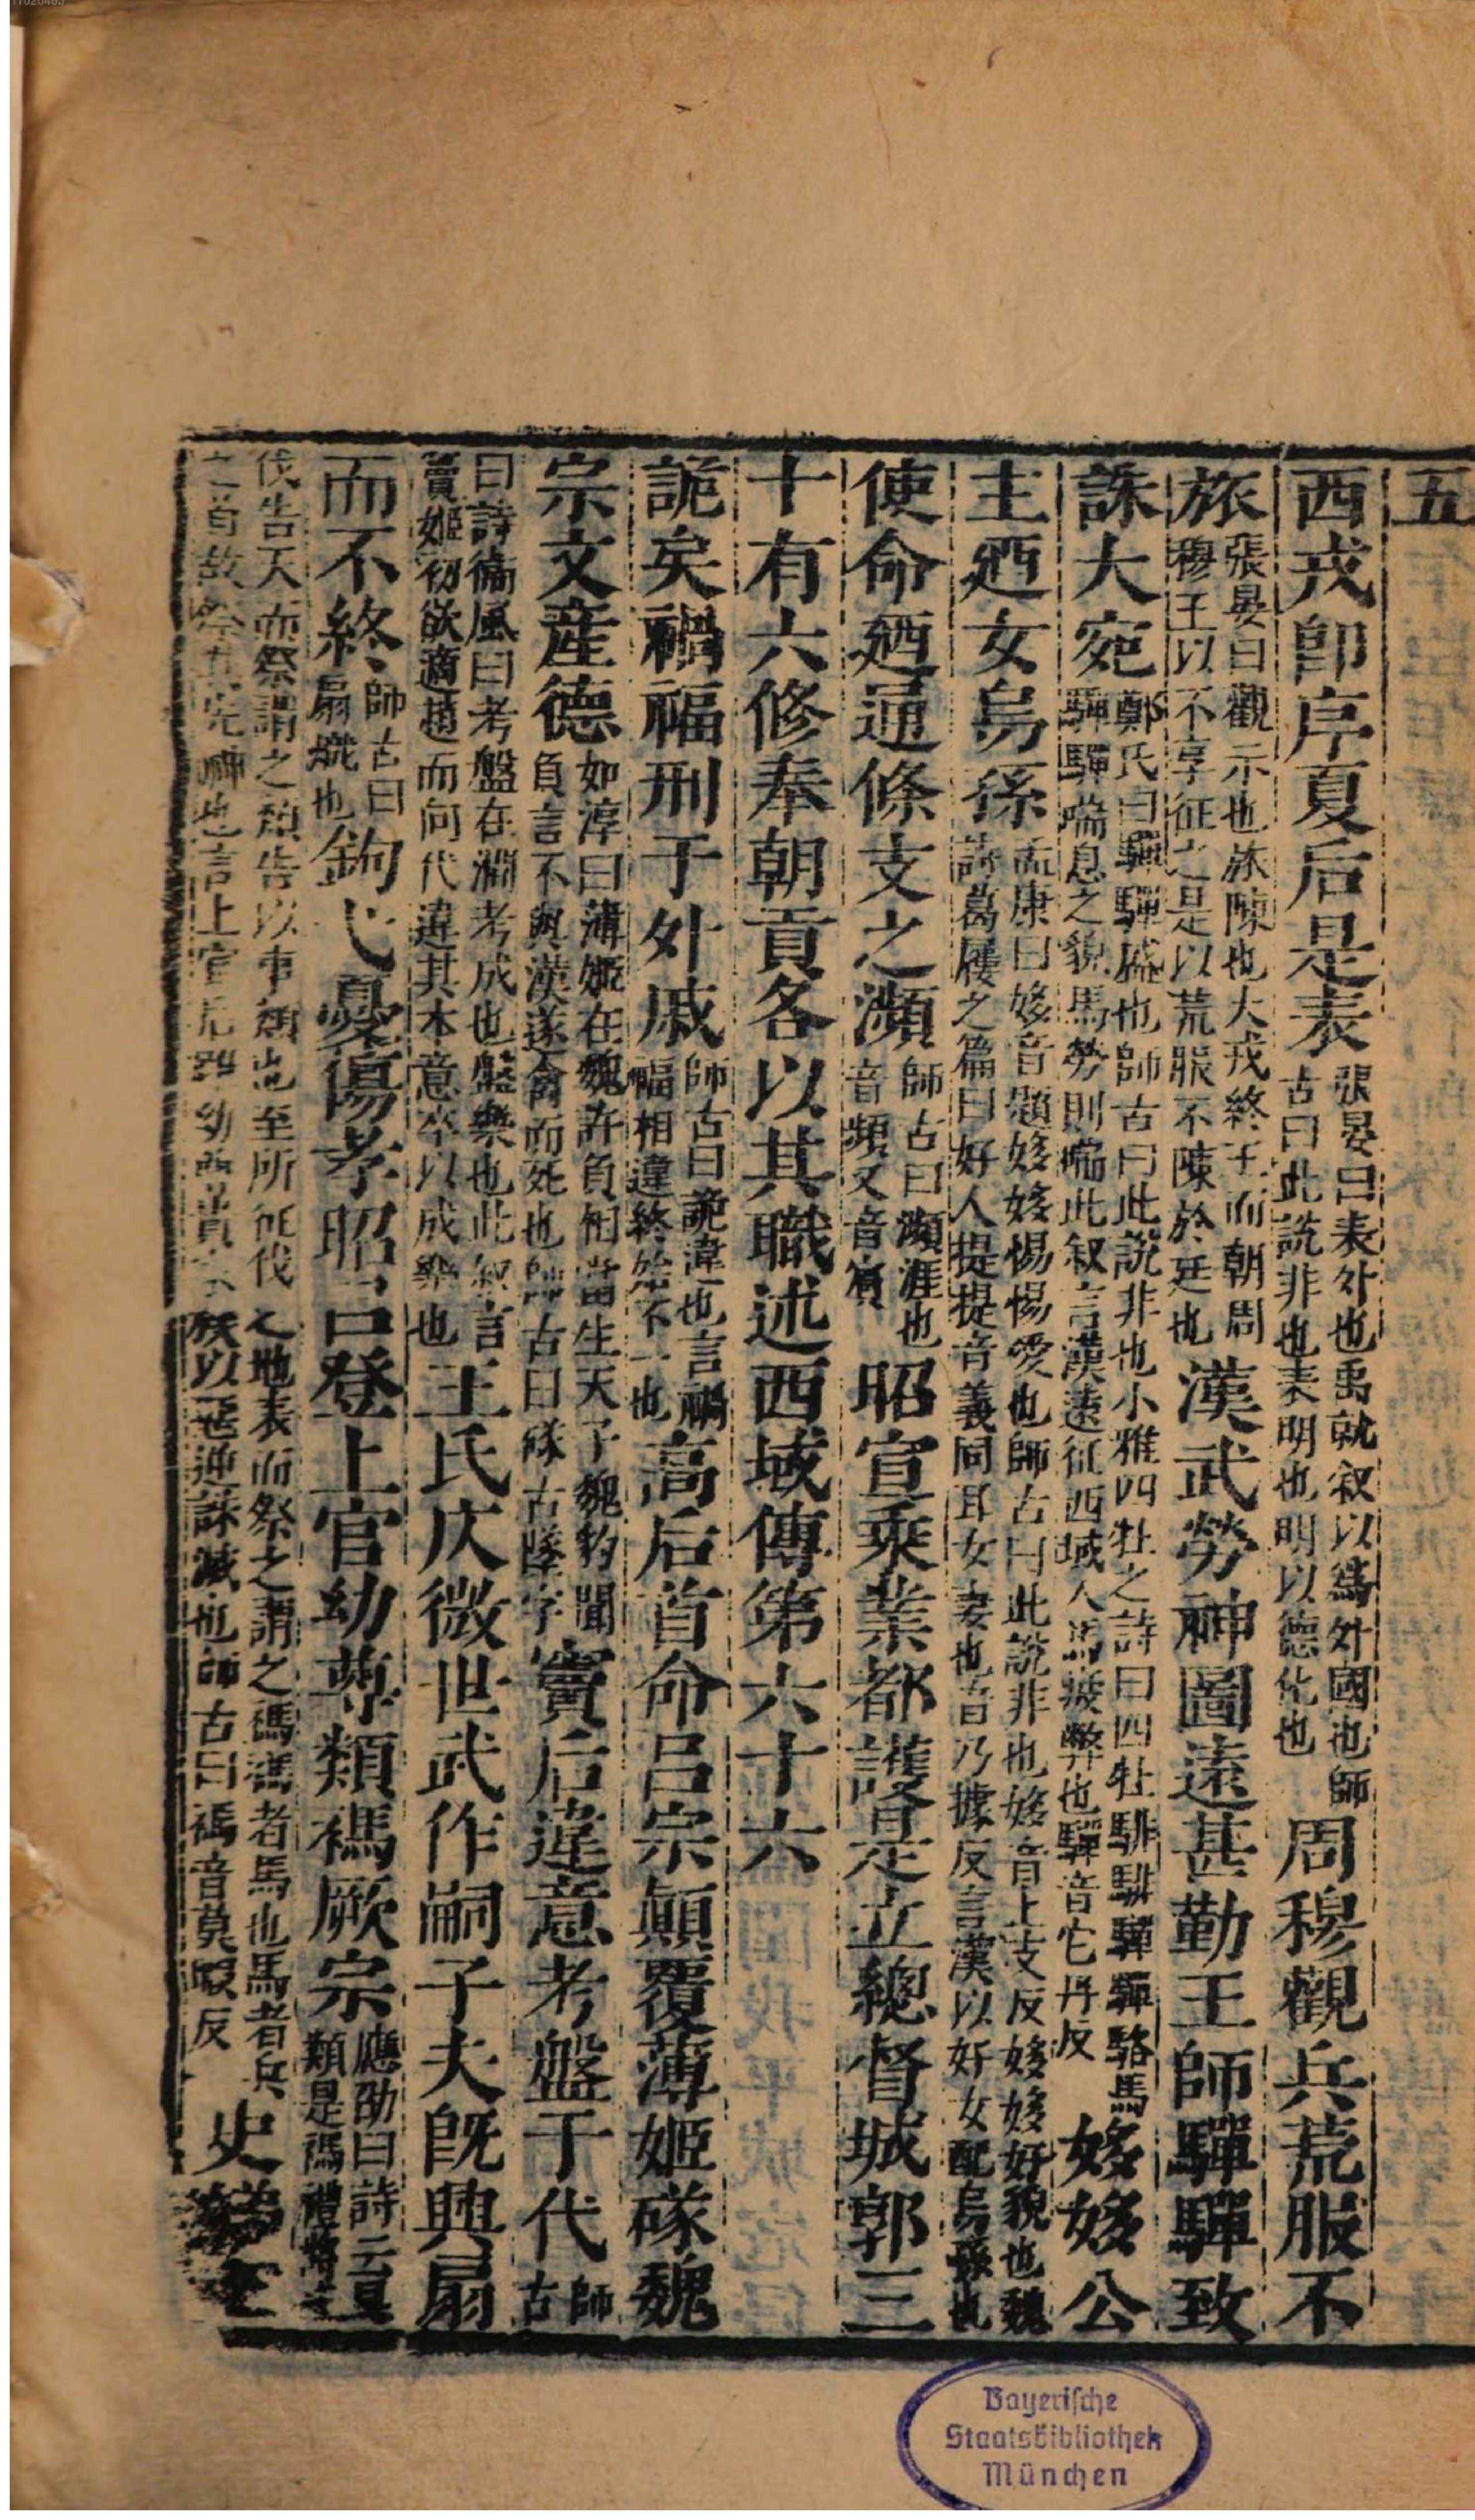 五
西戎卽序夏后是表張晏曰表外也禹就叙以爲外國也師古曰此說非也表明也明以德化也周穆觀兵荒服不
旅張晏曰觀示也旅陳也大戎終王而朝周穆王以不享征之是以荒服不陳於廷也漢武勞神圖遠甚勤王師驒驒致
誅大宛鄭氏曰驒驒盛也師古曰此說非也小雅四牡之詩曰四牡騑騑驒驒駱馬驒驒喘息之貌馬勞則喘此叙言漢遠征西域人馬疲弊也驒音它丹反姼姼公
主廼女烏孫孟康曰姼音題姼姼惕惕愛也師古曰此說非也姼音上支反姼姼好貌也魏詩葛屨之篇曰好人提提音義同耳女妻也音乃據反言漢以好女配烏孫也
使命廼通條支之瀕師古曰瀕涯也音頻又音賓昭宣乘業都護是立總督城郭三
十有六修奉朝貢各以其職述西域傳第六十六
詭矣禍福刑于外戚師古曰詭違也言禍福相違終始不一也高后首命呂宗顛覆薄姬磙魏
宗文産德如淳曰薄姬在魏許負相當生天子魏豹聞負言不與漢遂禽而死也師古曰磙古墜字竇后違意考盤于代師古
曰詩衞風曰考盤在澗考成也盤樂也此叙言竇姬初欲適趙而向代違其本意卒以成樂也王氏仄微世武作嗣子夫旣興扇
而不終師古曰扇熾也鉤弋憂傷孝昭以登上官幼尊類禡厥宗應劭曰詩云是類是禡禮將
伐告天而祭謂之類告以事類也至所征伐之地表而祭之謂之禡禡者馬也馬者兵之首故祭其先神也言上官后雖幼尊貴家族以惡逆誅滅也師古曰禡音莫暇反史
Bayerische
Staatsbibliothek
München